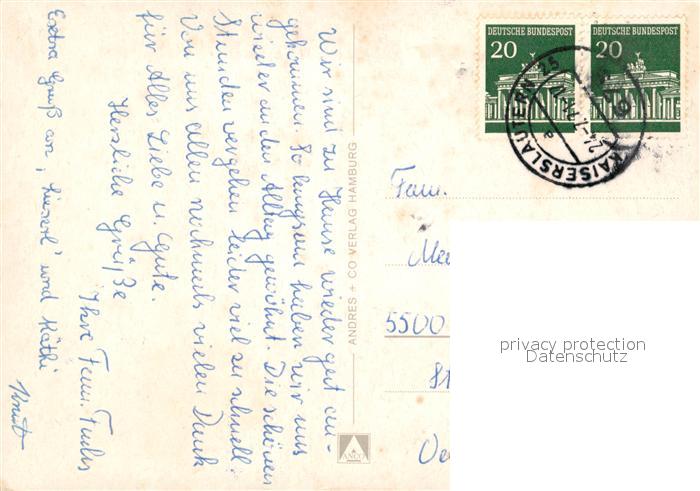 Wir sind zu Hause wieder gut an-
gekommen. So langsam haben wir uns
wieder an den Alltag gewöhnt. Die schönen
Stunden vergehen leider viel zu schnell.
Von uns allen nochmals vielen Dank
für Alles Liebe u. Gute.
Herzliche Grüße
Ihre Fam. Fuchs
Extra Gruß an, Lieserl" und Käthi
ANDRES + CO VERLAG HAMBURG
ANCO
DEUTSCHE BUNDESPOST
20
DEUTSCHE BUNDESPOST
20
KAISERSLAUTERN
a
Fam.
5500
privacy protection
Datenschutz